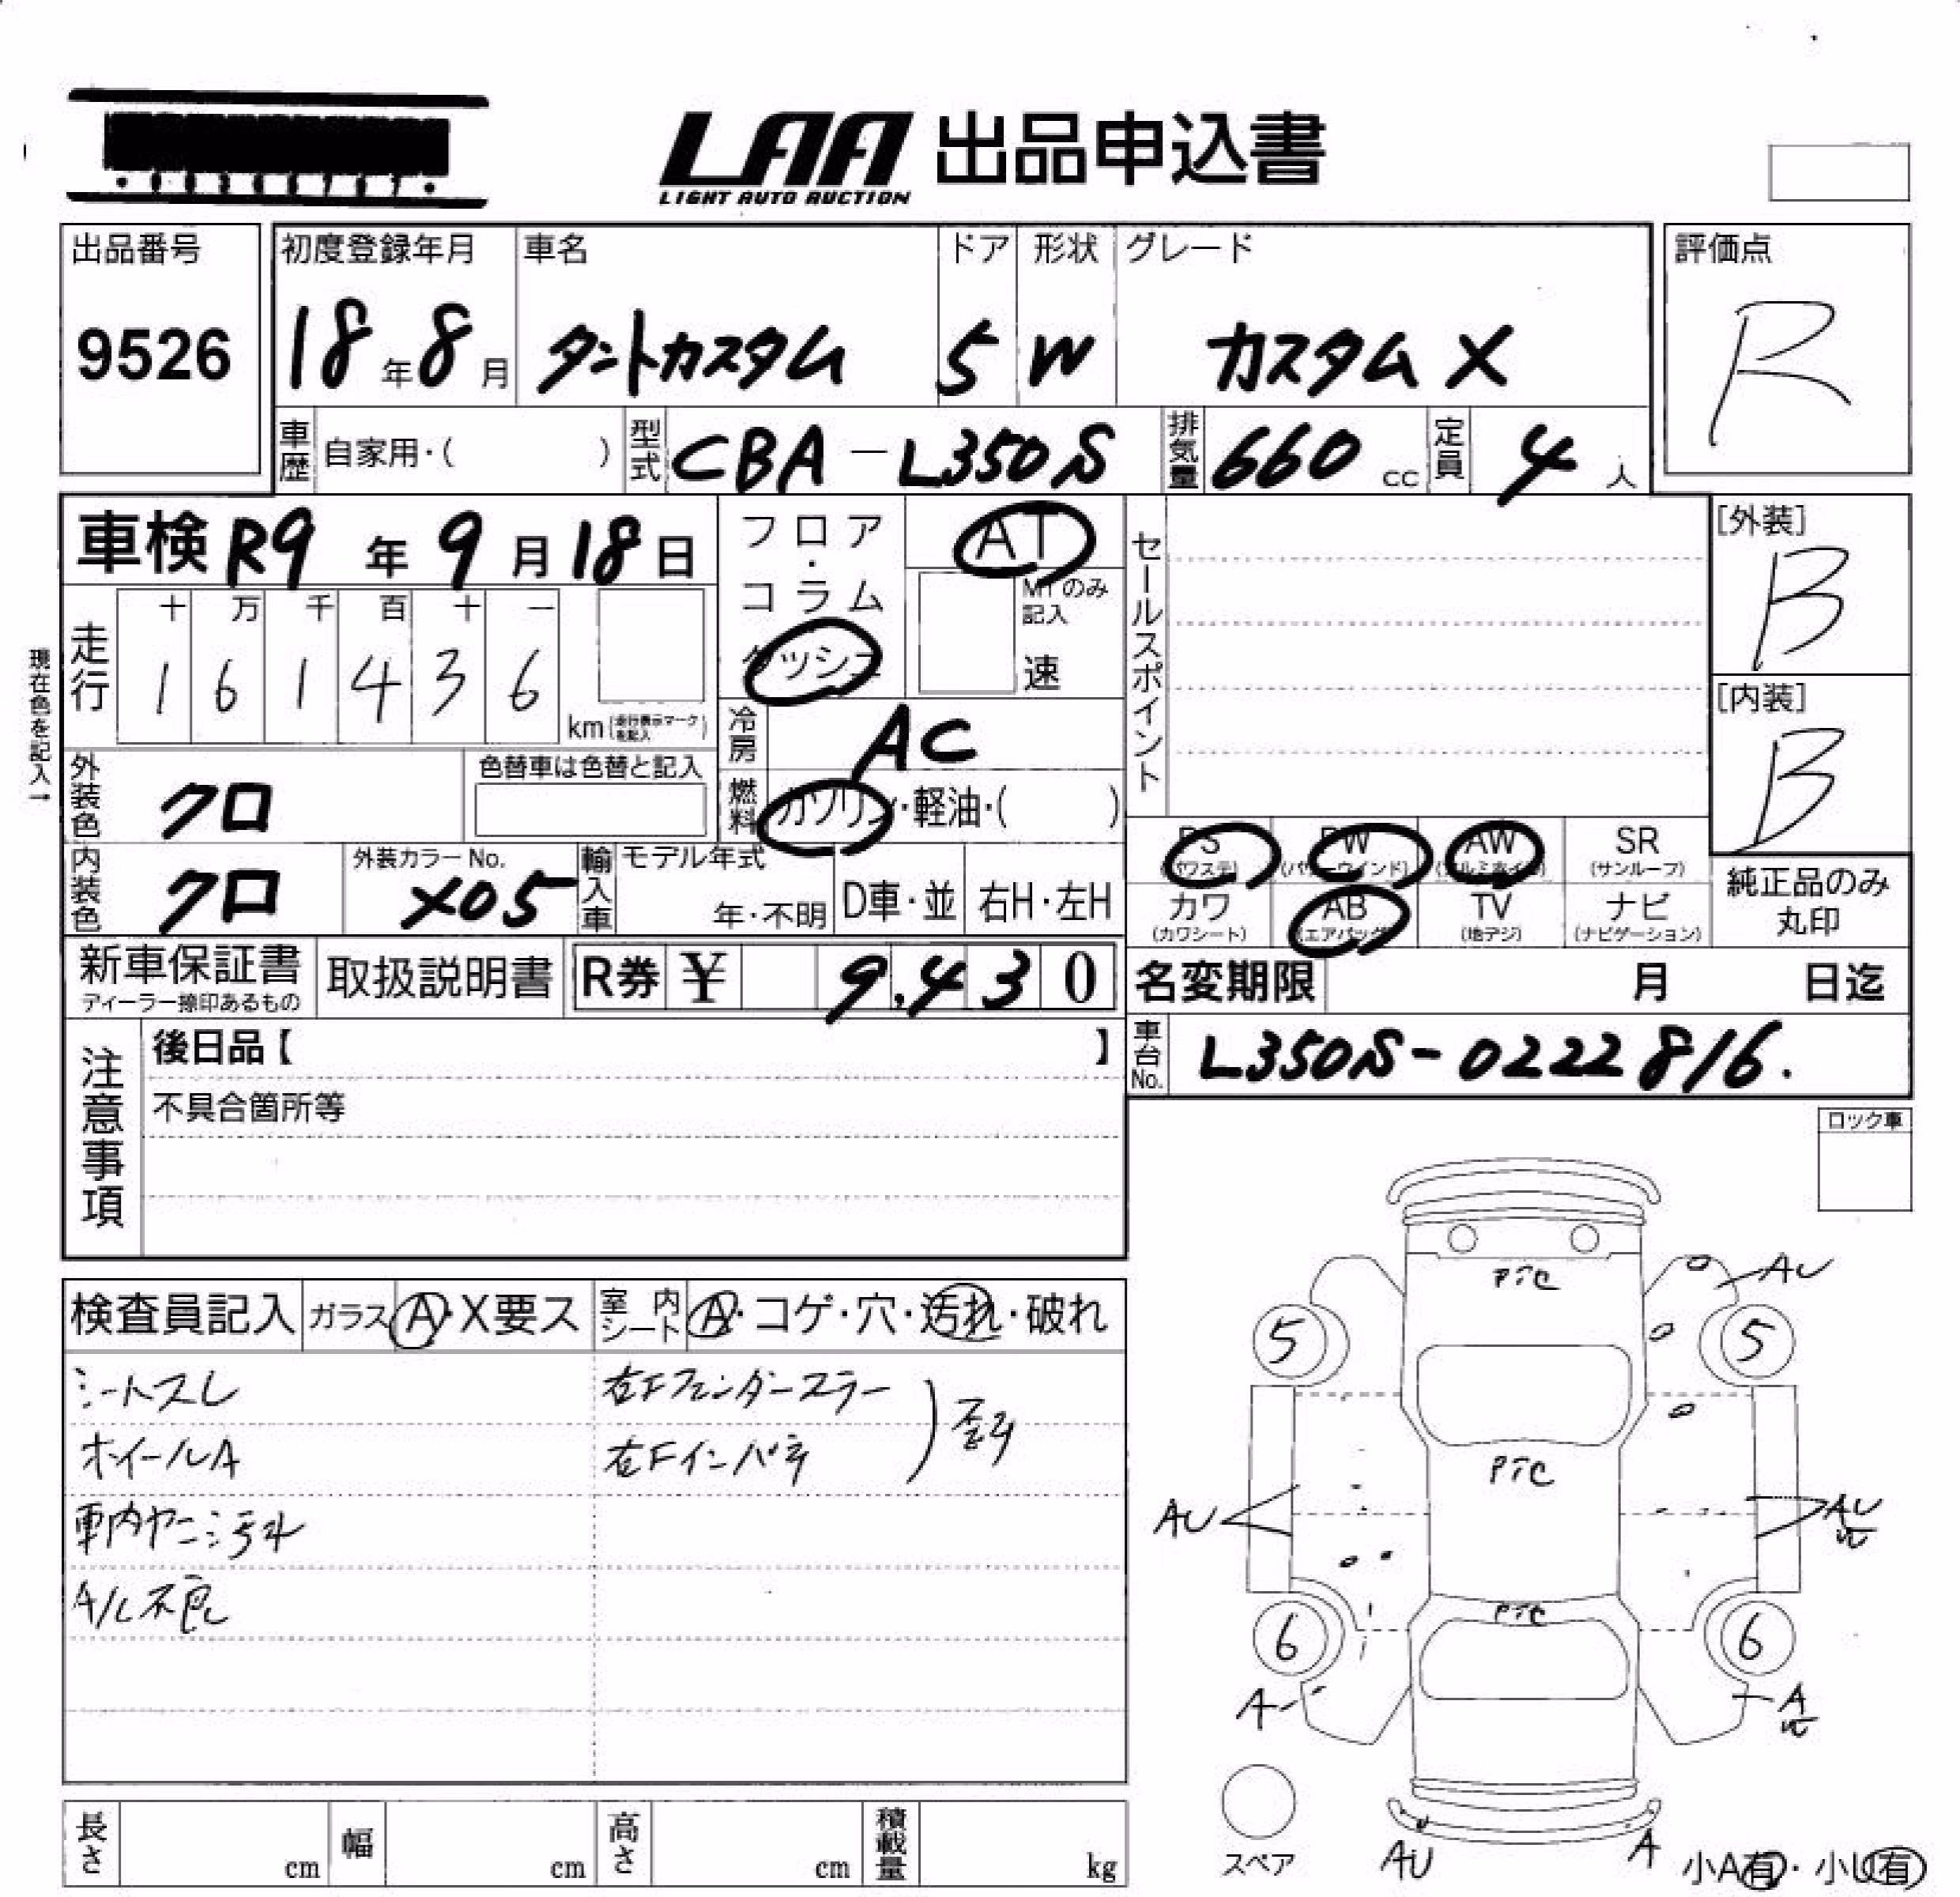 LAA 出品申込書
LIGHT AUTO AUCTION
出品番号 初度登録年月 車名 ドア 形状 グレード 評価点
9526 18年8月 タントカスタム 5 W カスタム X R
車歴 自家用・( ) 型式 CBA-L350S 排気量 660 cc 定員 4 人
車検 R9 年 9 月 18 日 フロア・コラム ダッシュ AT
MTのみ記入 速
セールスポイント
[外装] B
現在色を記入→
走行 十 万 千 百 十 一
1 6 1 4 3 6 km (走行表示マークを記入)
[内装] B
冷房 AC
外装色 クロ 色替車は色替と記入
燃料 ガソリン・軽油・( )
内装色 クロ 外装カラーNo. X05 輸入車 モデル年式 年・不明 D車・並 右H・左H
PS (パワステ) PW (パワーウインド) AW (アルミホイル) SR (サンルーフ)
カワ (カワシート) AB (エアバッグ) TV (地デジ) ナビ (ナビゲーション)
純正品のみ
丸印
新車保証書 取扱説明書 R券 ¥ 9,430
ディーラー捺印あるもの
名変期限 月 日迄
車台No. L350S-0222816.
注意事項
後日品【 】
不具合箇所等
ロック車
検査員記入 ガラス A・X要ス 室内シート A・コゲ・穴・汚れ・破れ
シートスレ 右Fフェンダーステー
ホイールA 右Fインパネ
車内ヤニ汚れ
A/C不良
PTC
AU
5 5
PTC
AU AU
PTC
6 6
A A
スペア
AU A
小A有・小U有
長さ cm 幅 cm 高さ cm 積載量 kg